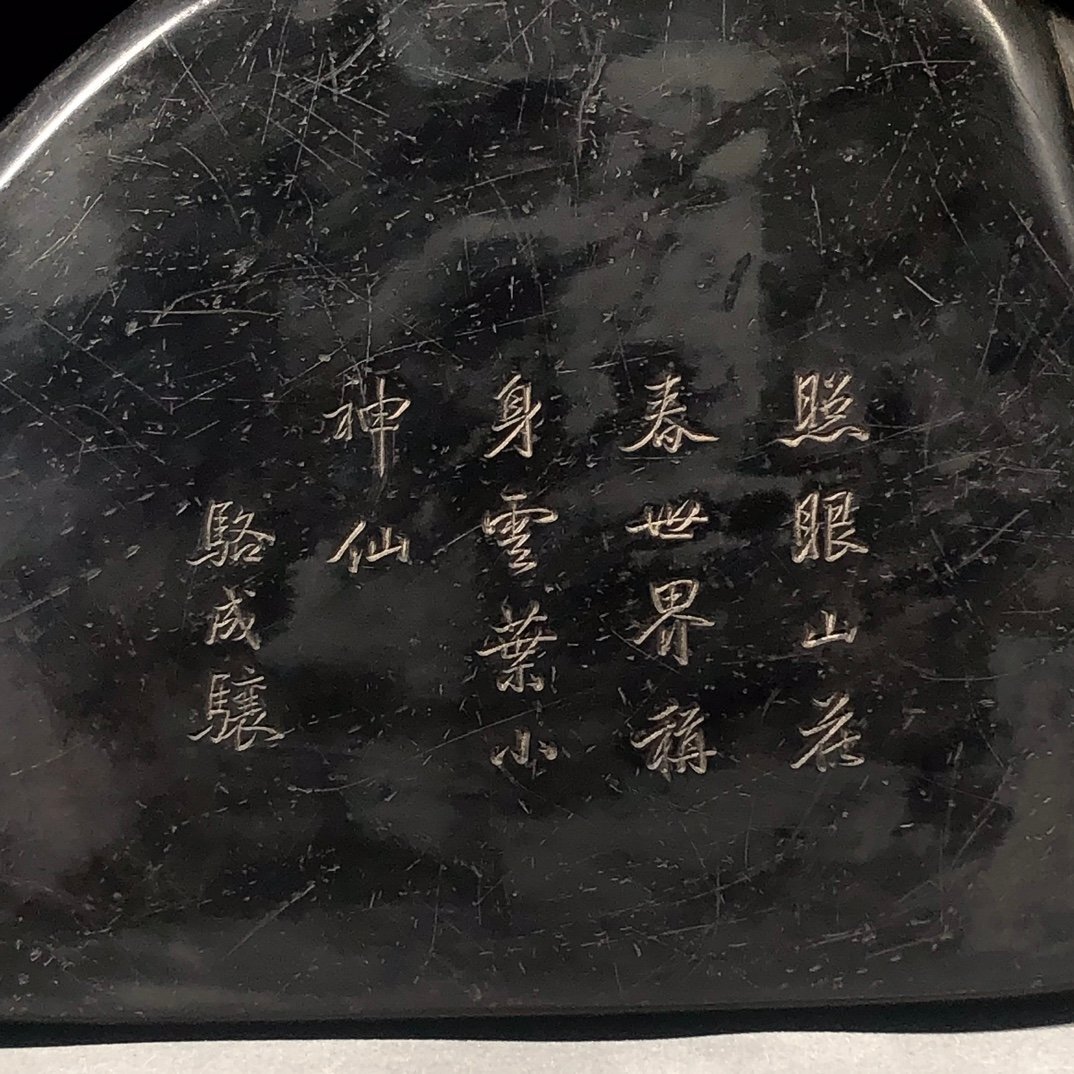 照眼山花
春世界稱
身雲葉小
神仙
駱成驤